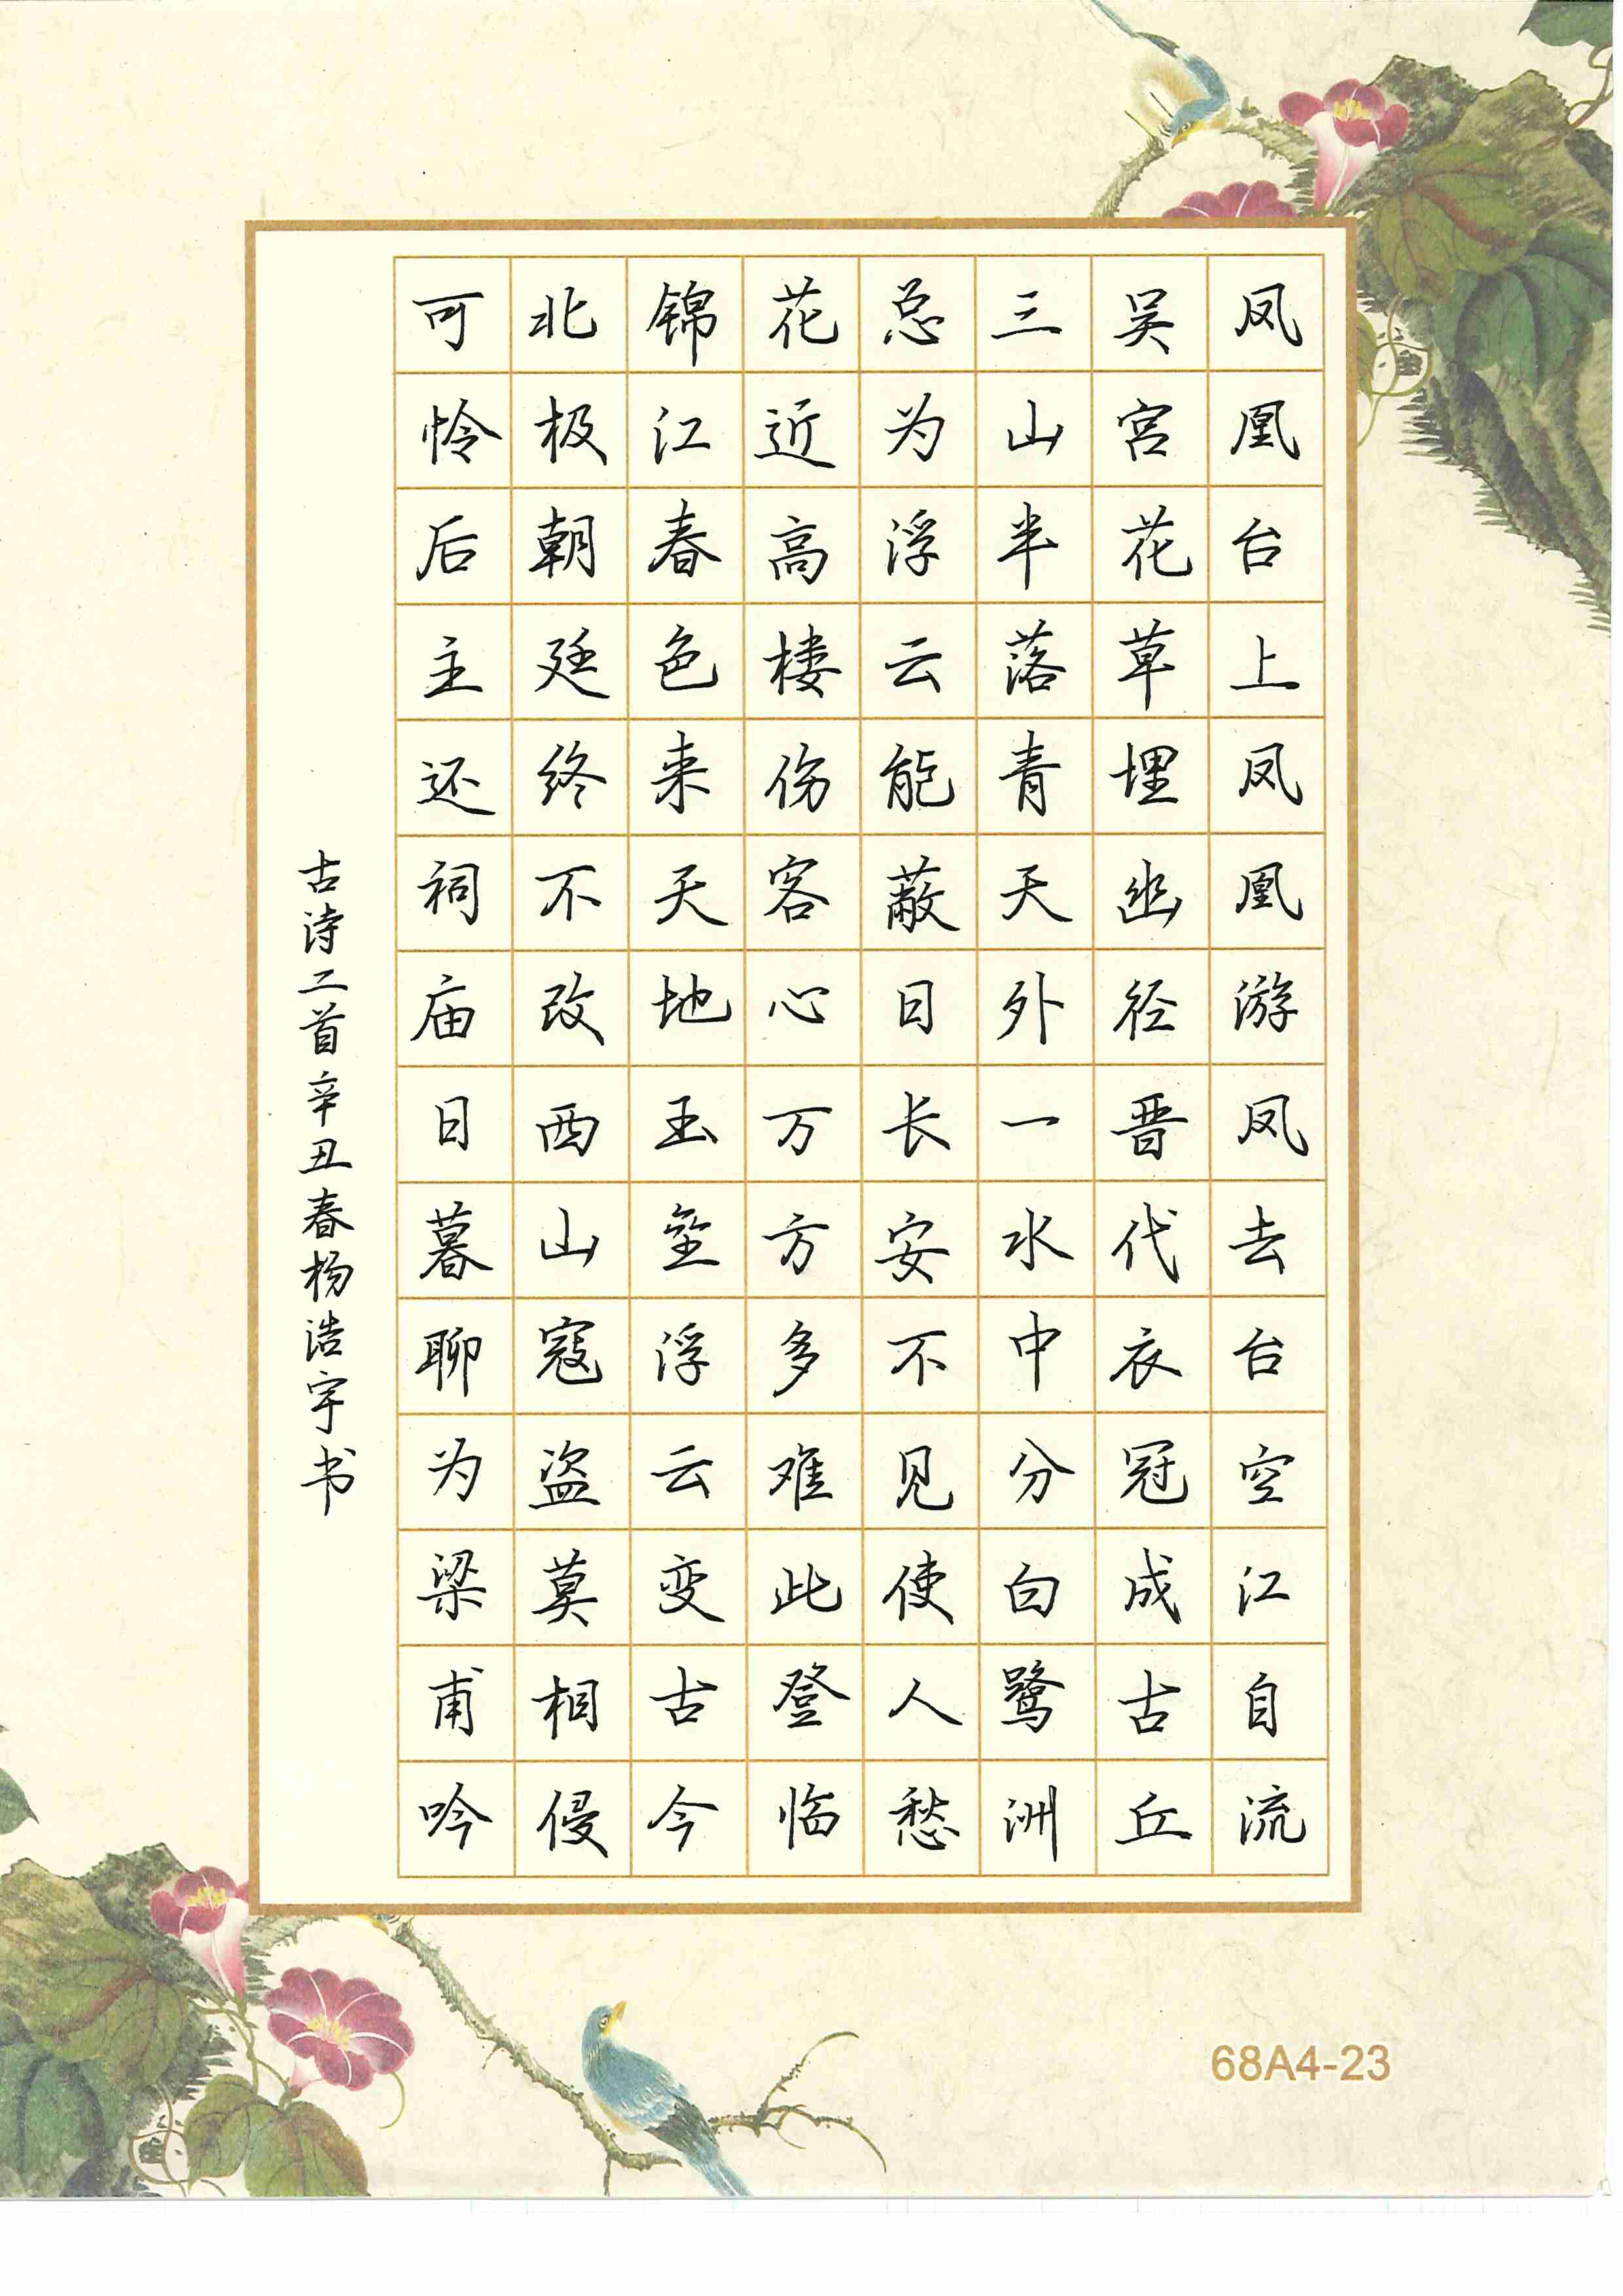 凤凰台上凤凰游凤去台空江自流
吴宫花草埋幽径晋代衣冠成古丘
三山半落青天外一水中分白鹭洲
总为浮云能蔽日长安不见使人愁
花近高楼伤客心万方多难此登临
锦江春色来天地玉垒浮云变古今
北极朝廷终不改西山寇盗莫相侵
可怜后主还祠庙日暮聊为梁甫吟
古诗二首辛丑春杨浩宇书
68A4-23